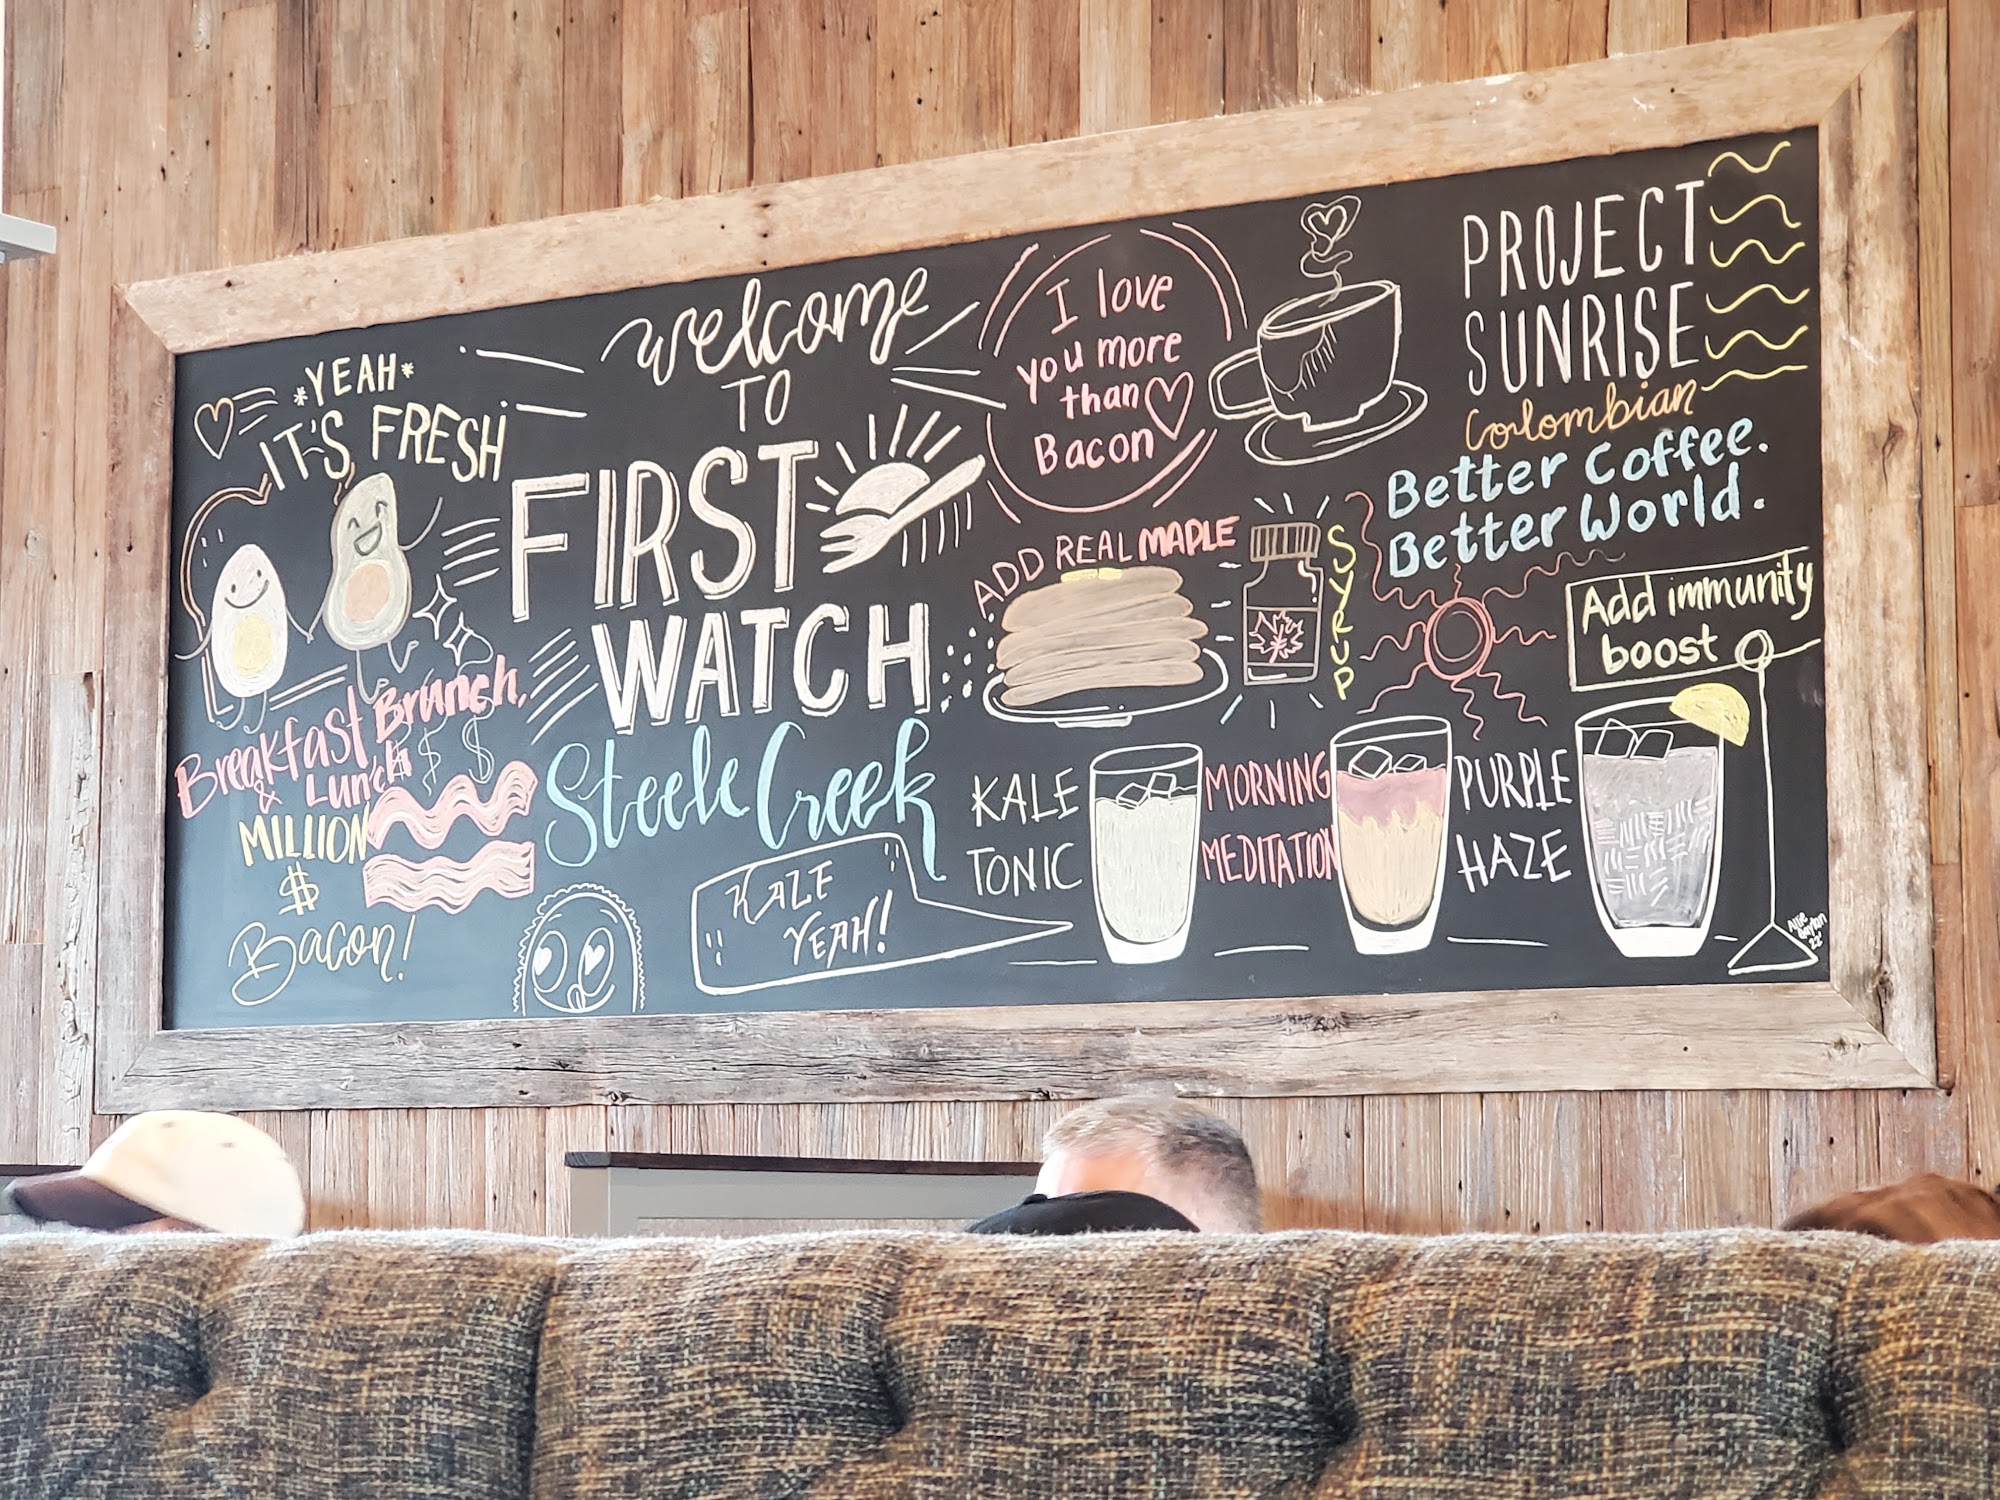 *YEAH*
IT'S FRESH
Breakfast Brunch,
& Lunch
MILLION
$
Bacon!
Welcome
TO
FIRST
WATCH
Steele Creek
KALE
YEAH!
I love
you more
than
Bacon
ADD REAL MAPLE
SYRUP
PROJECT
SUNRISE
Colombian
Better Coffee.
Better World.
Add immunity
boost
KALE
TONIC
MORNING
MEDITATION
PURPLE
HAZE
22